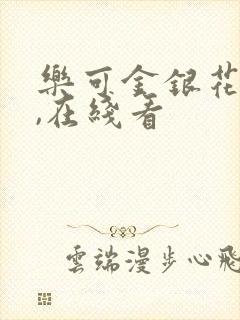 樂可金銀花
,在綫看
雲端漫步心飛